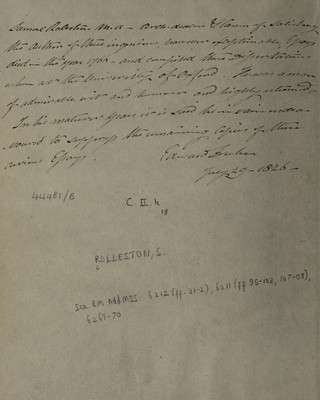 Samuel Rolleston M.A - Archdeacon & Canon of Salisbury
the Author of this ingenious, however exceptionable, Essay
died in the year 1766 - and compiled these Dissertations
when at the University of Oxford. He was a man
of admirable wit and humour and highly esteemed.
In his maturer years it is said he in vain endea-
voured to suppress the remaining Copies of these
curious Essays.
July 29 - 1826 -
44481/B
C II. h
18
ROLLESTON, S.
See BM Add MSS. 6212 (ff. 21-2), 6211 (ff 95-102, 107-08),
6269-70